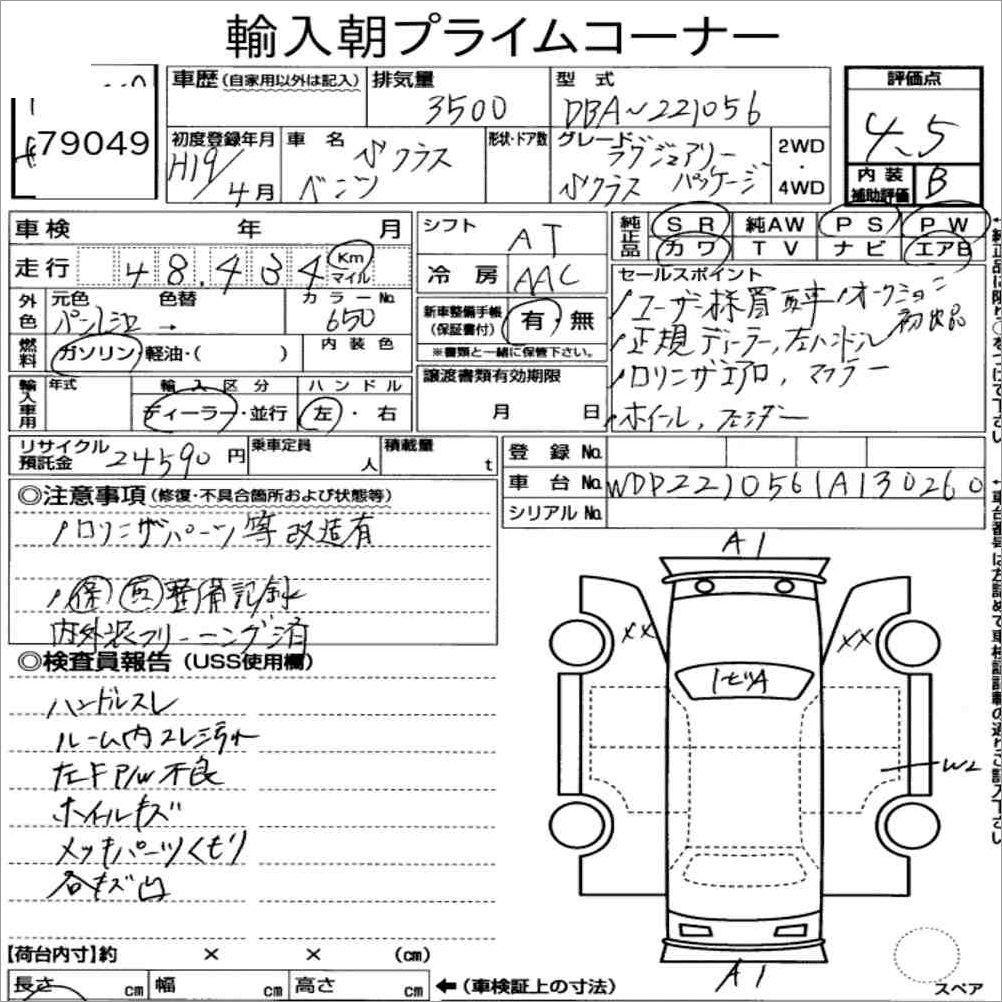 輸入朝プライムコーナー
79049
車歴(自家用以外は記入)
排気量
3500
型式
DBA~221056
評価点
4.5
初度登録年月
H19/4月
車名
ベンツ Sクラス
形状・ドア数
グレード ラグジュアリー
Sクラス パッケージ
2WD
・
4WD
内装
補助評価
B
車検 年 月
走行 48.434 Km
マイル
シフト AT
冷房 AAC
純正品
SR 純AW PS PW
カワ TV ナビ エアB
外色
元色 色替 カラーNo.
650
燃料
ガソリン・軽油・( )
内装色
新車整備手帳
(保証書付)
有・無
※書類と一緒に保管下さい。
セールスポイント
ノユーザー様買取車ノオークション
初出品
ノ正規ディーラー,左ハンドル
ノロリンザエアロ,マフラー
ノホイール,フェンダー
輸入車用
年式
輸入区分 ハンドル
ディーラー・並行 左・右
譲渡書類有効期限
月 日
リサイクル
預託金
24590円
乗車定員 人
積載量 t
登録No.
車台No. WDD2210561A130260
シリアルNo.
◎注意事項(修復・不具合箇所および状態等)
ノロリンザパーツ等改造有
ノ保 整備記録
内外装クリーニング済
◎検査員報告(USS使用欄)
ハンドルスレ
ルーム内スレ汚れ
左FP/W不良
ホイルキズ
メッキパーツくもり
各キズ凹
A1
XX
XX
トビツA
W2
A1
スペア
【荷台内寸】約 × × (cm)
長さ cm 幅 cm 高さ cm ←(車検証上の寸法)